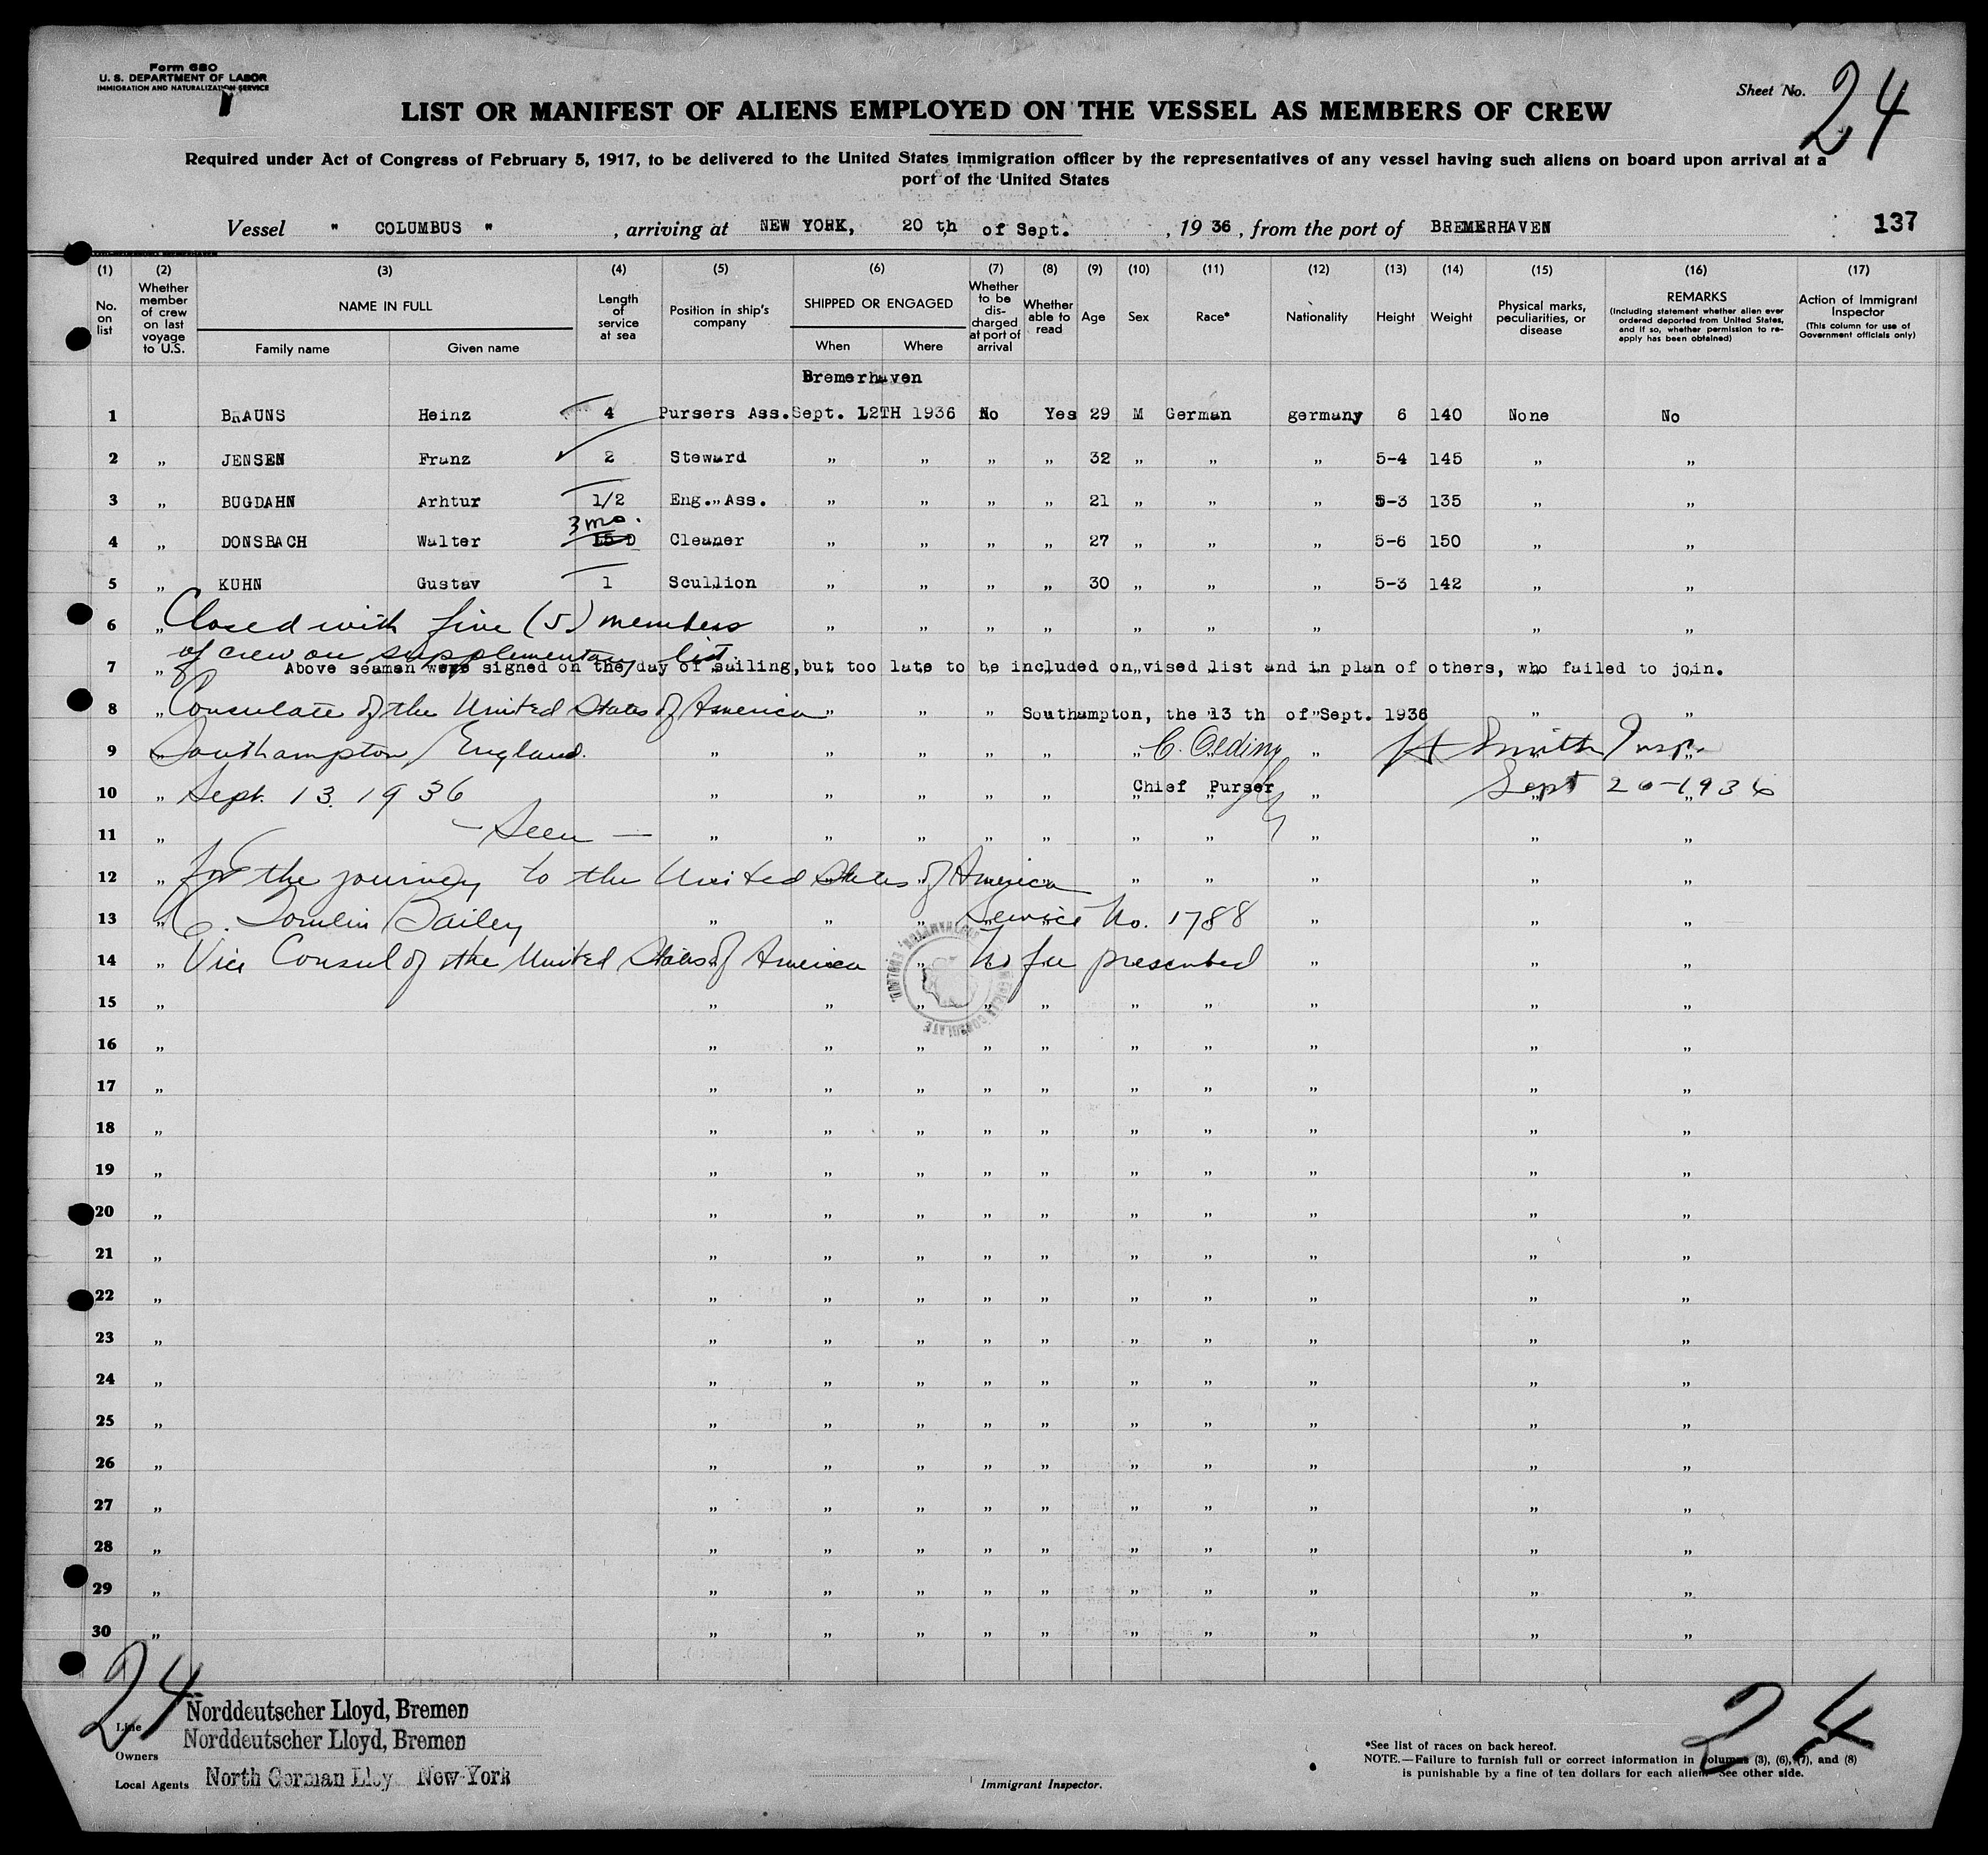 Form 680
U. S. DEPARTMENT OF LABOR
IMMIGRATION AND NATURALIZATION SERVICE
Sheet No. 24
LIST OR MANIFEST OF ALIENS EMPLOYED ON THE VESSEL AS MEMBERS OF CREW
Required under Act of Congress of February 5, 1917, to be delivered to the United States immigration officer by the representatives of any vessel having such aliens on board upon arrival at a
port of the United States
Vessel " COLUMBUS " , arriving at NEW YORK, 20 th of Sept. , 1936 , from the port of BREMERHAVEN 137
(1) (2) (3) (4) (5) (6) (7) (8) (9) (10) (11) (12) (13) (14) (15) (16) (17)
No. on list
Whether member of crew on last voyage to U.S.
NAME IN FULL
Family name
Given name
Length of service at sea
Position in ship's company
SHIPPED OR ENGAGED
When
Where
Whether to be discharged at port of arrival
Whether able to read
Age
Sex
Race*
Nationality
Height
Weight
Physical marks, peculiarities, or disease
REMARKS
(Including statement whether alien ever ordered deported from United States, and if so, whether permission to reapply has been obtained)
Action of Immigrant Inspector
(This column for use of Government officials only)
Bremerhaven
1 BRAUNS Heinz 4 Pursers Ass. Sept. 12TH 1936 No Yes 29 M German germany 6 140 None No
2 „ JENSEN Franz 2 Steward „ „ „ „ 32 „ „ „ 5-4 145 „ „
3 „ BUGDAHN Arhtur 1/2 Eng. „ Ass. „ „ „ „ 21 „ „ „ 5-3 135 „ „
3 mo.
4 „ DONSBACH Walter 15 D Cleaner „ „ „ „ 27 „ „ „ 5-6 150 „ „
5 „ KUHN Gustav 1 Scullion „ „ „ „ 30 „ „ „ 5-3 142 „ „
6 „ Closed with five (5) members „ „ „ „ „ „ „ „ „
of crew on supplementary list
7 „ Above seamen were signed on the day of sailing, but too late to be included on vised list and in plan of others, who failed to join.
8 „ Consulate of the United States of America „ „ „ Southampton, the 13 th of Sept. 1936 „ „
9 „ Southampton, England. „ „ „ „ „ „ C. Oeding „ H Smith Insp. „
10 „ Sept. 13. 1936 „ „ „ „ „ Chief Purser „ Sept 20-1936
11 „ — Seen — „ „ „ „ „ „ „ „ „ „
12 „ for the journey to the United States of America „ „ „ „ „
13 „ C. Tomlin Bailey „ „ „ Service No. 1788 „ „ „
14 „ Vice Consul of the United States of America „ No fee presented „ „ „
AMERICAN CONSULATE SOUTHAMPTON, ENGLAND.
15 „ „ „ „ „ „ „ „ „ „ „
16 „ „ „ „ „ „ „ „ „ „ „
17 „ „ „ „ „ „ „ „ „ „ „
18 „ „ „ „ „ „ „ „ „ „ „
19 „ „ „ „ „ „ „ „ „ „ „
20 „ „ „ „ „ „ „ „ „ „ „
21 „ „ „ „ „ „ „ „ „ „ „
22 „ „ „ „ „ „ „ „ „ „ „
23 „ „ „ „ „ „ „ „ „ „ „
24 „ „ „ „ „ „ „ „ „ „ „
25 „ „ „ „ „ „ „ „ „ „ „
26 „ „ „ „ „ „ „ „ „ „ „
27 „ „ „ „ „ „ „ „ „ „ „
28 „ „ „ „ „ „ „ „ „ „ „
29 „ „ „ „ „ „ „ „ „ „ „
30 „ „ „ „ „ „ „ „ „ „ „
24
24
Line Norddeutscher Lloyd, Bremen
Owners Norddeutscher Lloyd, Bremen
Local Agents North German Lloy New-York
Immigrant Inspector.
*See list of races on back hereof.
NOTE.—Failure to furnish full or correct information in columns (3), (6), (7), and (8)
is punishable by a fine of ten dollars for each alien. See other side.